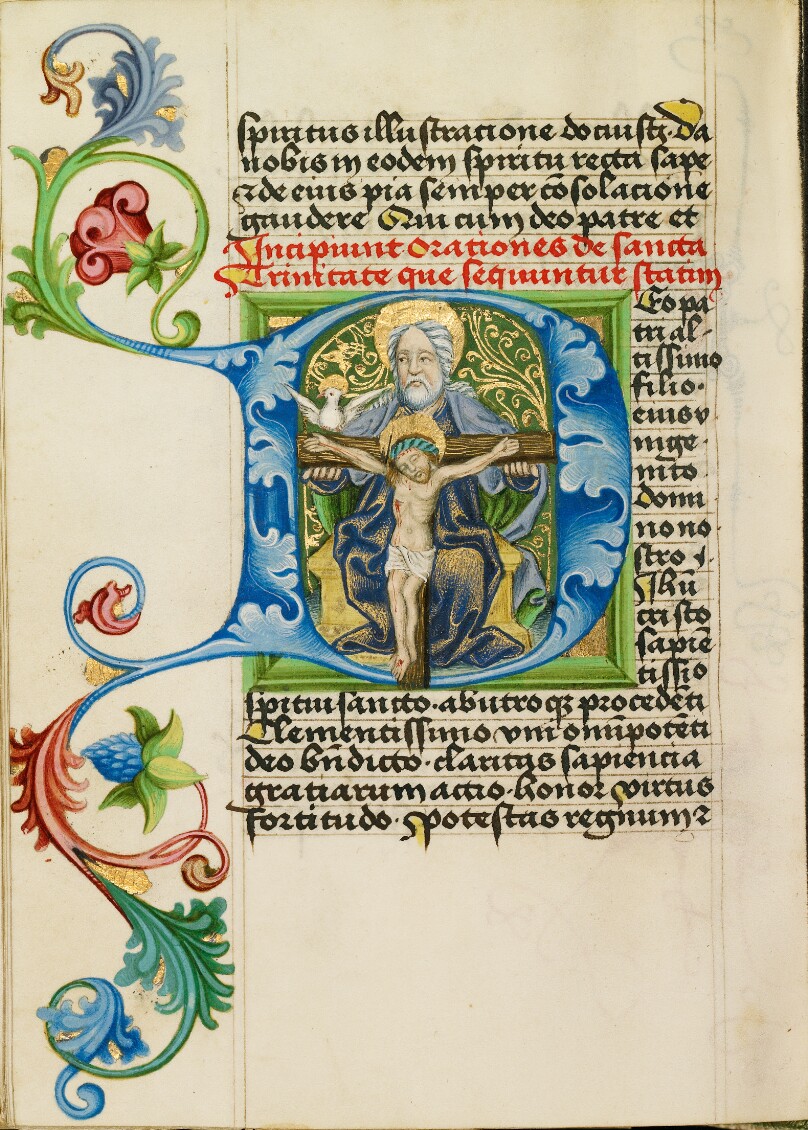 spiritus illustracione docuisti· Da
nobis in eodem spiritu recta sape
⁊ de euis pia semper cōsolacione
gaudere Qui cum deo patre et
Incipiunt orationes de sancta
Trinitate que sequuntur statim
D Eo pa
tri al-
tissimo
filio·
euis v
nige·
nito
domi
no no
stro ·
Jhū
cristo
sapiē
tissīo
spitui sancto· ab utroqꝫ procedēti
Clementissimo vni omīpotēti
deo bn̄dicto· claritas sapiencia
gratiarum actio· honor virtus
fortitudo· potestas regnum ⁊